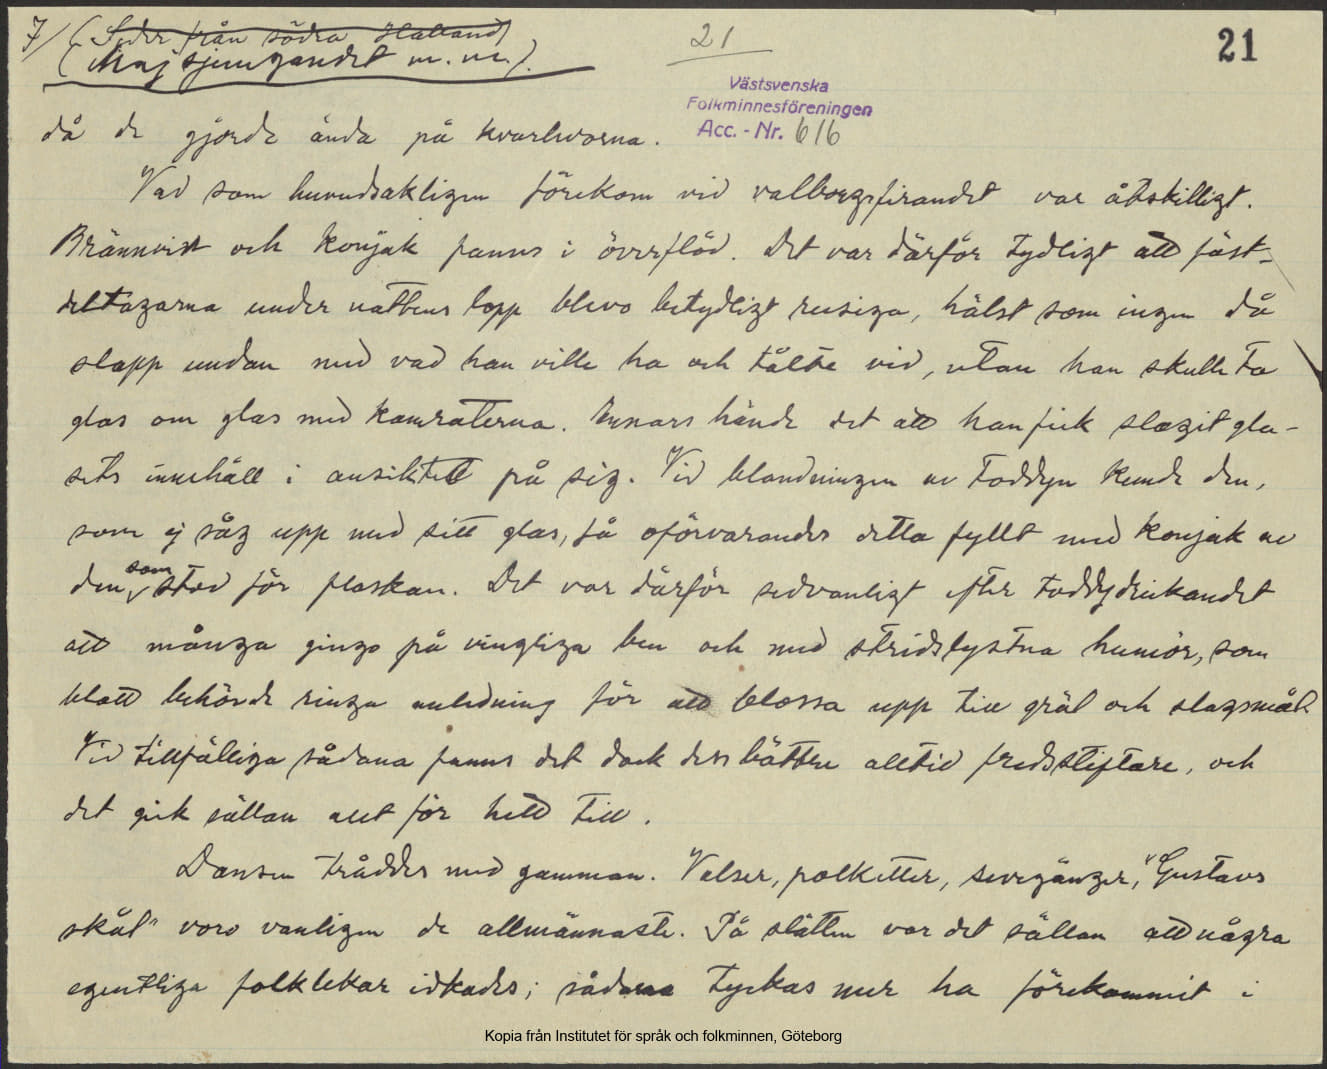 7/ (Seder från södra Halland)
(Majsjungandet m. m.).
21
21
Västsvenska
Folkminnesföreningen
Acc. - Nr. 616
då de gjorde ända på kvarlevorna.
Vad som huvudsakligen förekom vid valborgsfirandet var åtskilligt.
Brännvin och konjak fanns i överflöd. Det var därför tydligt att fäst-
deltagarna under nattens lopp blevo betydligt rusiga, hälst som ingen då
slapp undan med vad han ville ha och tålte vid, utan han skulle ta
glas om glas med kamraterna. Annars hände det att han fick slagit gla-
sets innehåll i ansiktet på sig. Vid blandningen av toddyn kunde den,
som ej såg upp med sitt glas, få oförvarandes detta fyllt med konjak av
den som stod för flaskan. Det var därför sedvanligt efter toddydrickandet
att många gingo på vingliga ben och med stridslystna humör, som
blott behövde ringa anledning för att blossa upp till gräl och slagsmål.
Vid tillfälliga sådana fanns det dock dess bättre alltid fredsstiftare, och
det gick sällan allt för hett till.
Dansen tråddes med gamman. Valser, polketter, sexegånger, "Gustavs
skål" voro vanligen de allmännaste. På slätten var det sällan att några
egentliga folklekar idkades; sådana tyckas mer ha förekommit i
Kopia från Institutet för språk och folkminnen, Göteborg